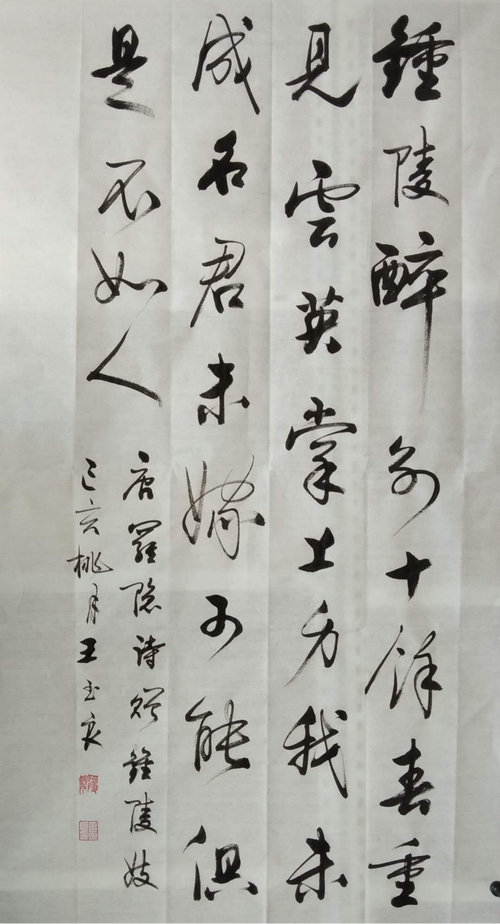 鍾陵醉别十餘春重
見雲英掌上身我未
成名君未嫁可能俱
是不如人
唐羅隱詩贈鍾陵妓
己亥桃月王玉良